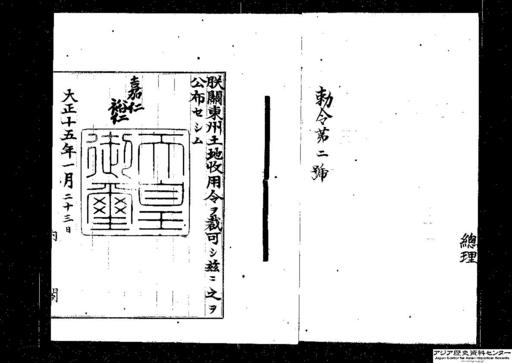 總理
勅令第二號
朕關東州土地收用令ヲ裁可シ玆ニ之ヲ
公布セシム
嘉仁
裕仁
天皇
御璽
大正十五年一月二十三日
内閣
アジア歴史資料センター
Japan Center for Asian Historical Records